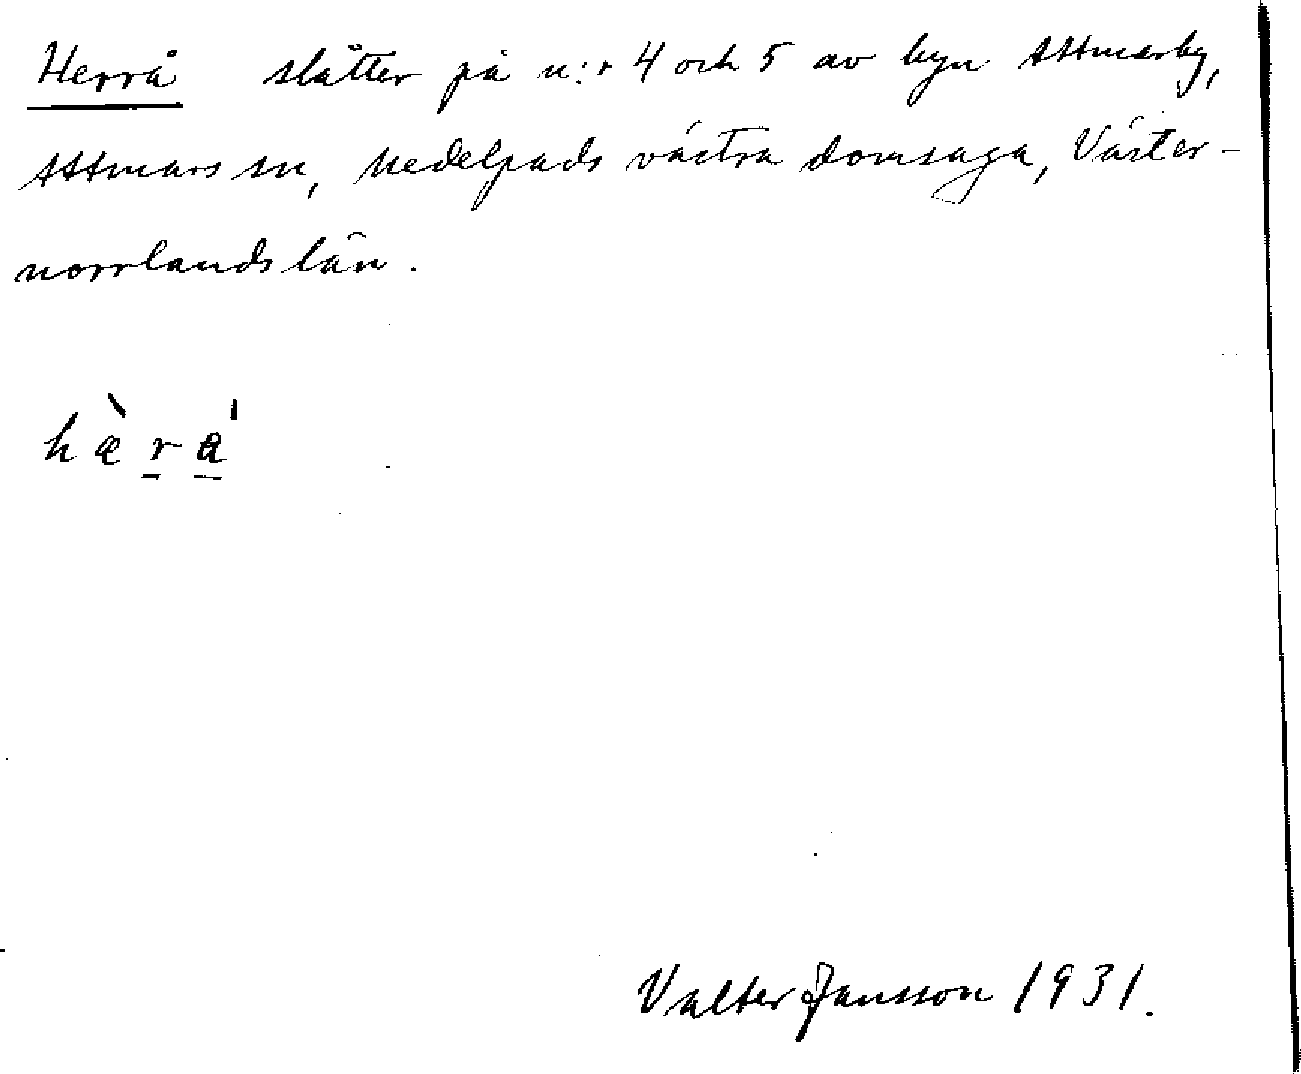 Herrå slåtter på n:r 4 och 5 av byn Attmarby,
Attmars sn, Medelpads västra domsaga, Väster-
norrlands län.
hæ̀ra̍
Valter Jansson 1931.